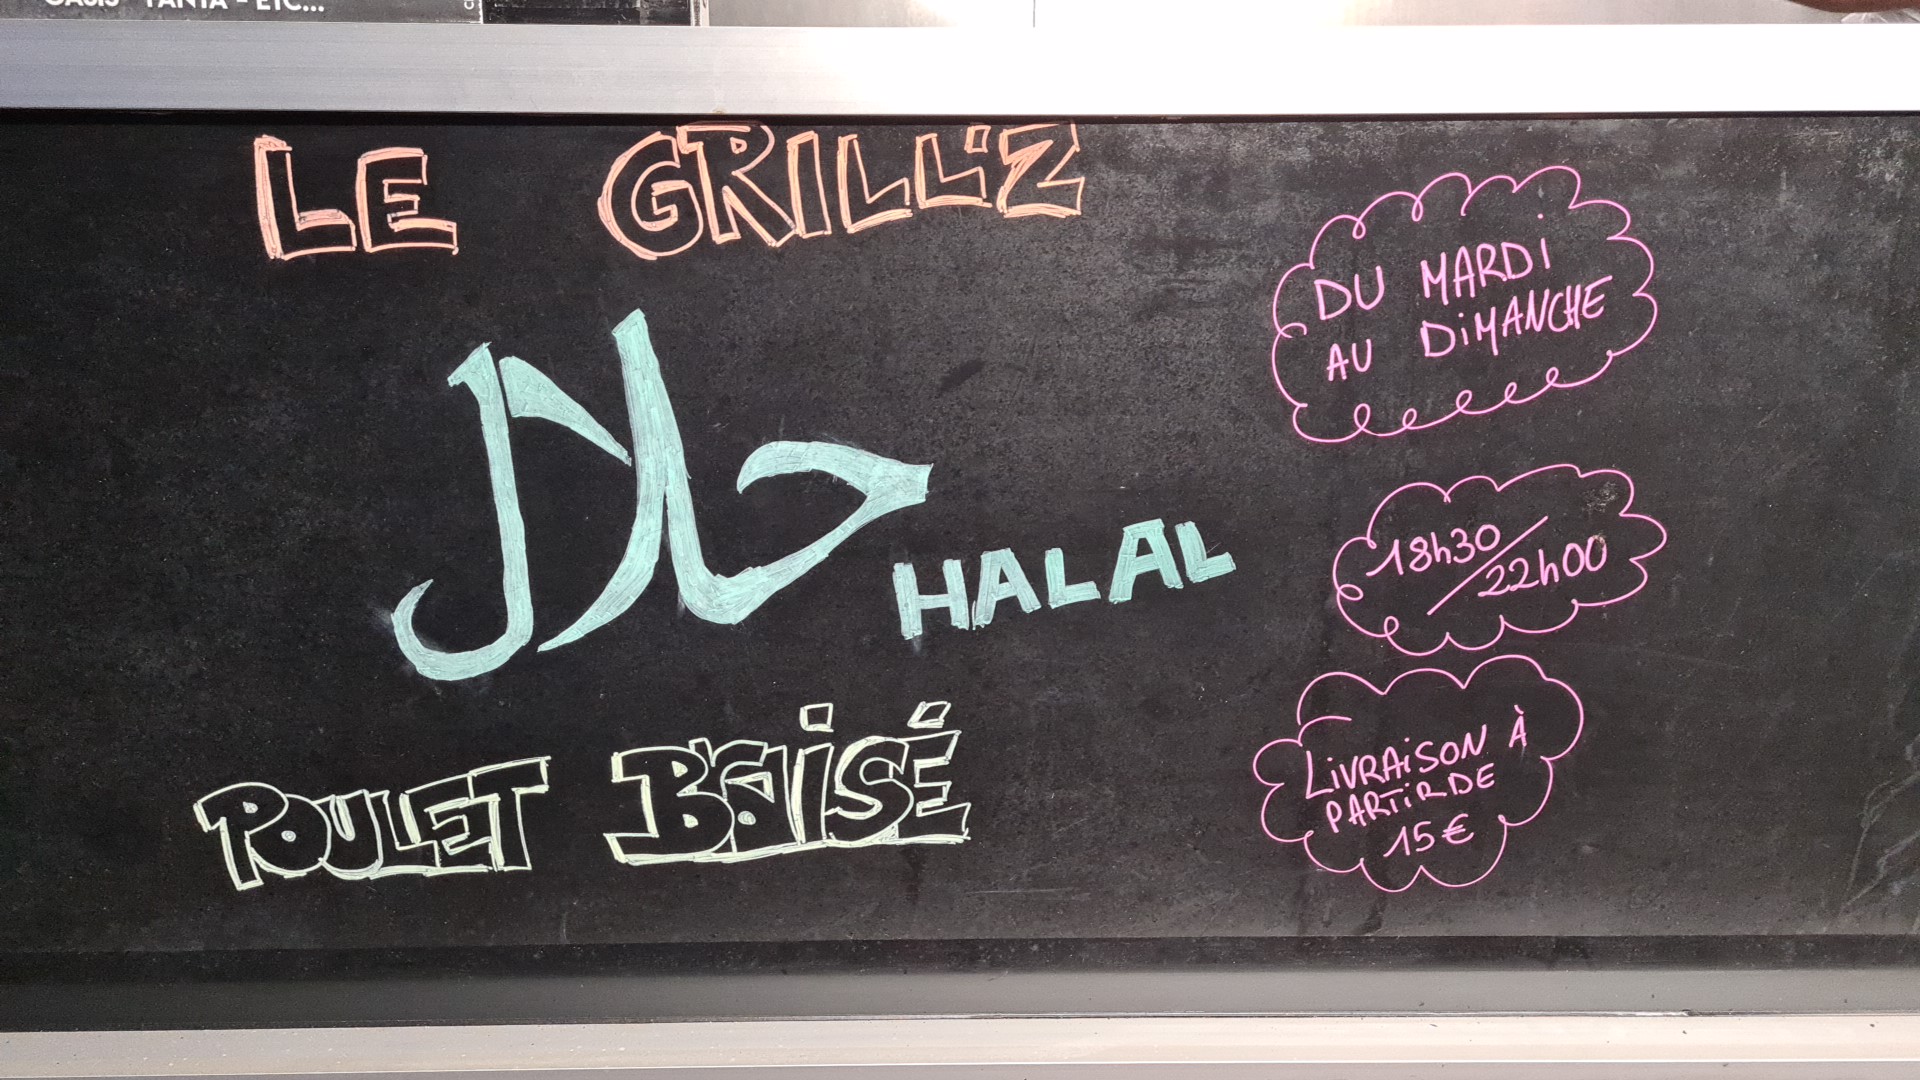 OASIS - FANTA - ETC...
LE GRILL'Z
حلال
HALAL
POULET BRAISÉ
DU MARDI
AU DIMANCHE
18h30/22h00
LIVRAISON À
PARTIR DE
15€